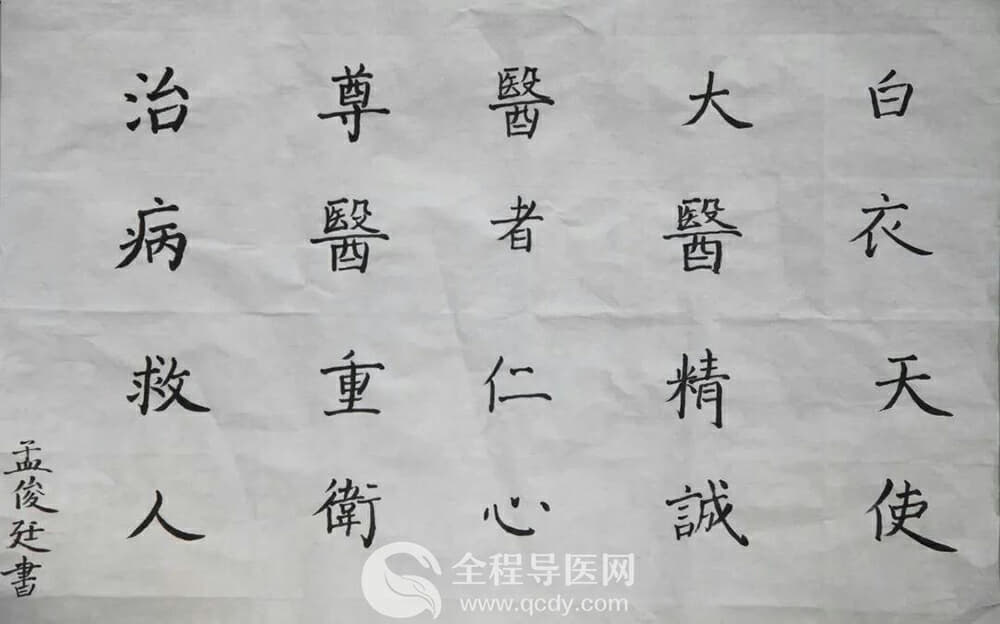 白衣天使
大醫精誠
醫者仁心
尊醫重衛
治病救人
孟俊廷書
全程导医网
www.qcdy.com